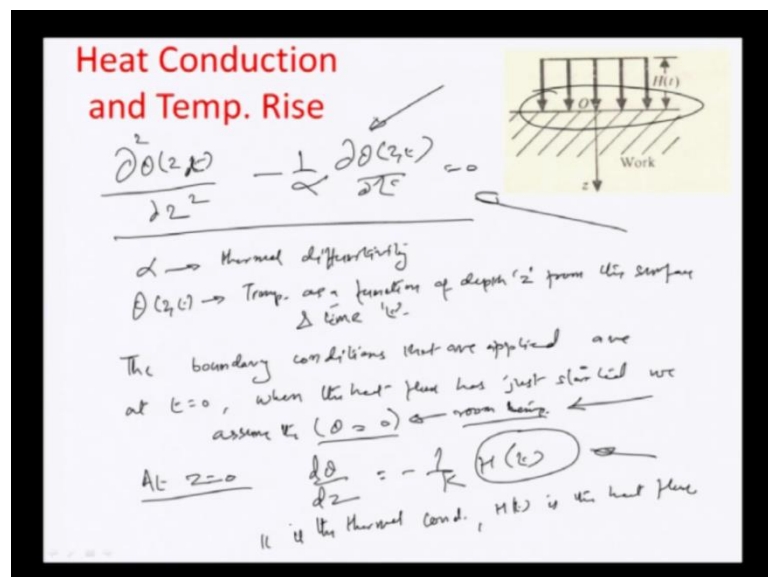 Heat Conduction
and Temp. Rise
H(t)
O
Work
z
∂²θ(z,t)/∂z² - 1/α ∂θ(z,t)/∂t = 0
α → thermal diffusivity
θ(z,t) → Temp. as a function of depth 'z' from the surface
& time 't'.
The boundary conditions that are applied are
at t=0, when the heat flux has just started we
assume the (θ = 0) ← room temp.
At z=0 dθ/dz = - 1/k H(t)
k is the thermal cond., H(t) is the heat flux